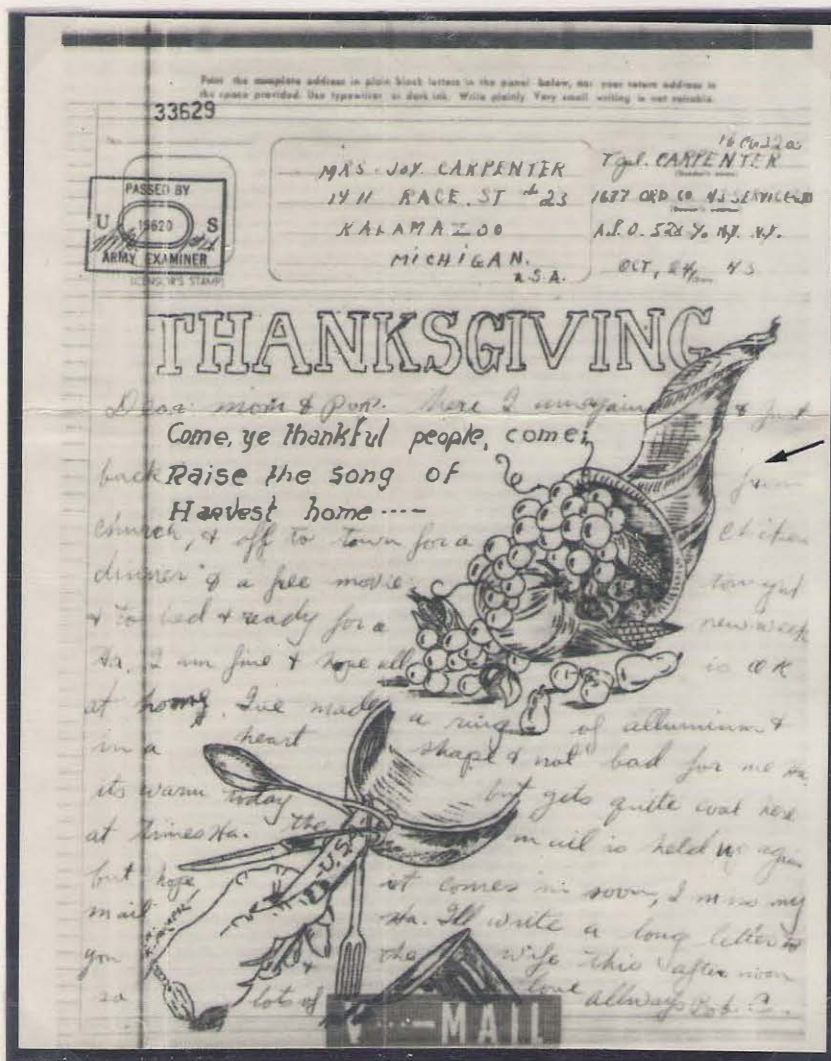 Print the complete address in plain block letters in the panel below, and your return address in
the space provided. Use typewriter or dark ink. Write plainly. Very small writing is not suitable.
33629
No.
PASSED BY
U 19620 S
ARMY EXAMINER
(CENSOR'S STAMP)
MRS. JOY. CARPENTER
1411 RACE. ST # 23
KALAMAZOO
MICHIGAN.
U.S.A.
CARPENTER
(Sender's name)
1677 ORD CO
A.P.O. 528 % N.Y. N.Y.
OCT, 43
THANKSGIVING
Dear mom & Pop. here I am again & just
Come, ye thankful people, come;
back from
Raise the song of
Harvest home ----
church, & off to town for a chicken
dinner & a free movie tonight
& to bed & ready for a new week
Ha. I am fine & hope all is OK
at home. I've made a ring of alluminum &
in a heart shape & not bad for me Ha.
its warm today but gets quite cool here
at times Ha. the mail is held up again
U.S.A.
but hope it comes in soon, I miss my
mail Ha. I'll write a long letter to
you & the wife this afternoon
so lots of love allways Bob. C.
V···—MAIL